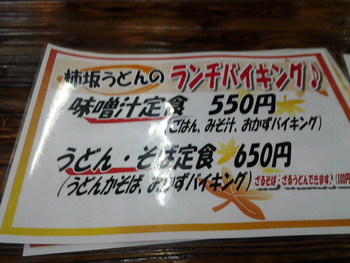 柿坂うどんの ランチバイキング♪
味噌汁定食 550円
(ごはん、みそ汁、おかずバイキング)
うどん・そば定食 650円
(うどんかそば、おかずバイキング) ざるそば・ざるうどんできます。(100円